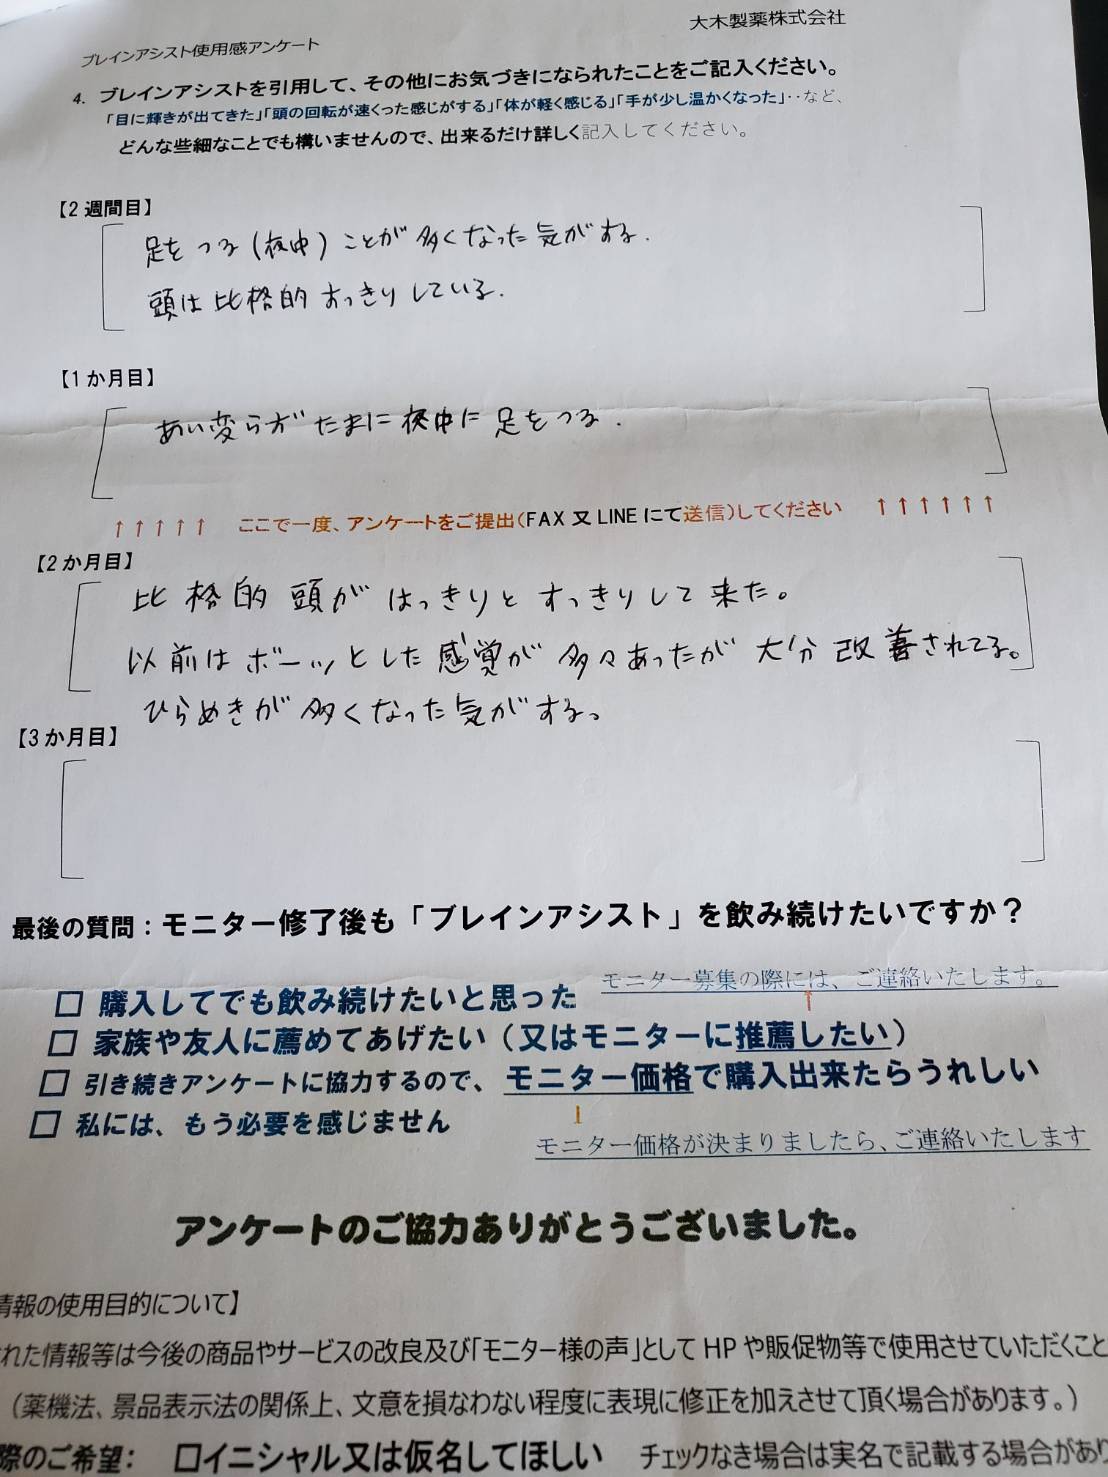 大木製薬株式会社
ブレインアシスト使用感アンケート
4. ブレインアシストを引用して、その他にお気づきになられたことをご記入ください。
「目に輝きが出てきた」「頭の回転が速くった感じがする」「体が軽く感じる」「手が少し温かくなった」‥など、
どんな些細なことでも構いませんので、出来るだけ詳しく記入してください。
【2週間目】
足をつる(夜中)ことが多くなった気がする.
頭は比格的すっきりしている.
【1か月目】
あい変らずたまに夜中に足をつる.
↑↑↑↑↑ ここで一度、アンケートをご提出(FAX又LINEにて送信)してください ↑↑↑↑↑↑
【2か月目】
比格的頭がはっきりとすっきりして来た。
以前はボーッとした感覚が多々あったが大分改善されてる。
ひらめきが多くなった気がする。
【3か月目】
最後の質問:モニター修了後も「ブレインアシスト」を飲み続けたいですか?
モニター募集の際には、ご連絡いたします。
□ 購入してでも飲み続けたいと思った
□ 家族や友人に薦めてあげたい(又はモニターに推薦したい)
□ 引き続きアンケートに協力するので、モニター価格で購入出来たらうれしい
□ 私には、もう必要を感じません
モニター価格が決まりましたら、ご連絡いたします
アンケートのご協力ありがとうございました。
情報の使用目的について】
れた情報等は今後の商品やサービスの改良及び「モニター様の声」としてHPや販促物等で使用させていただくこと
(薬機法、景品表示法の関係上、文意を損なわない程度に表現に修正を加えさせて頂く場合があります。)
際のご希望: □イニシャル又は仮名してほしい チェックなき場合は実名で記載する場合があり